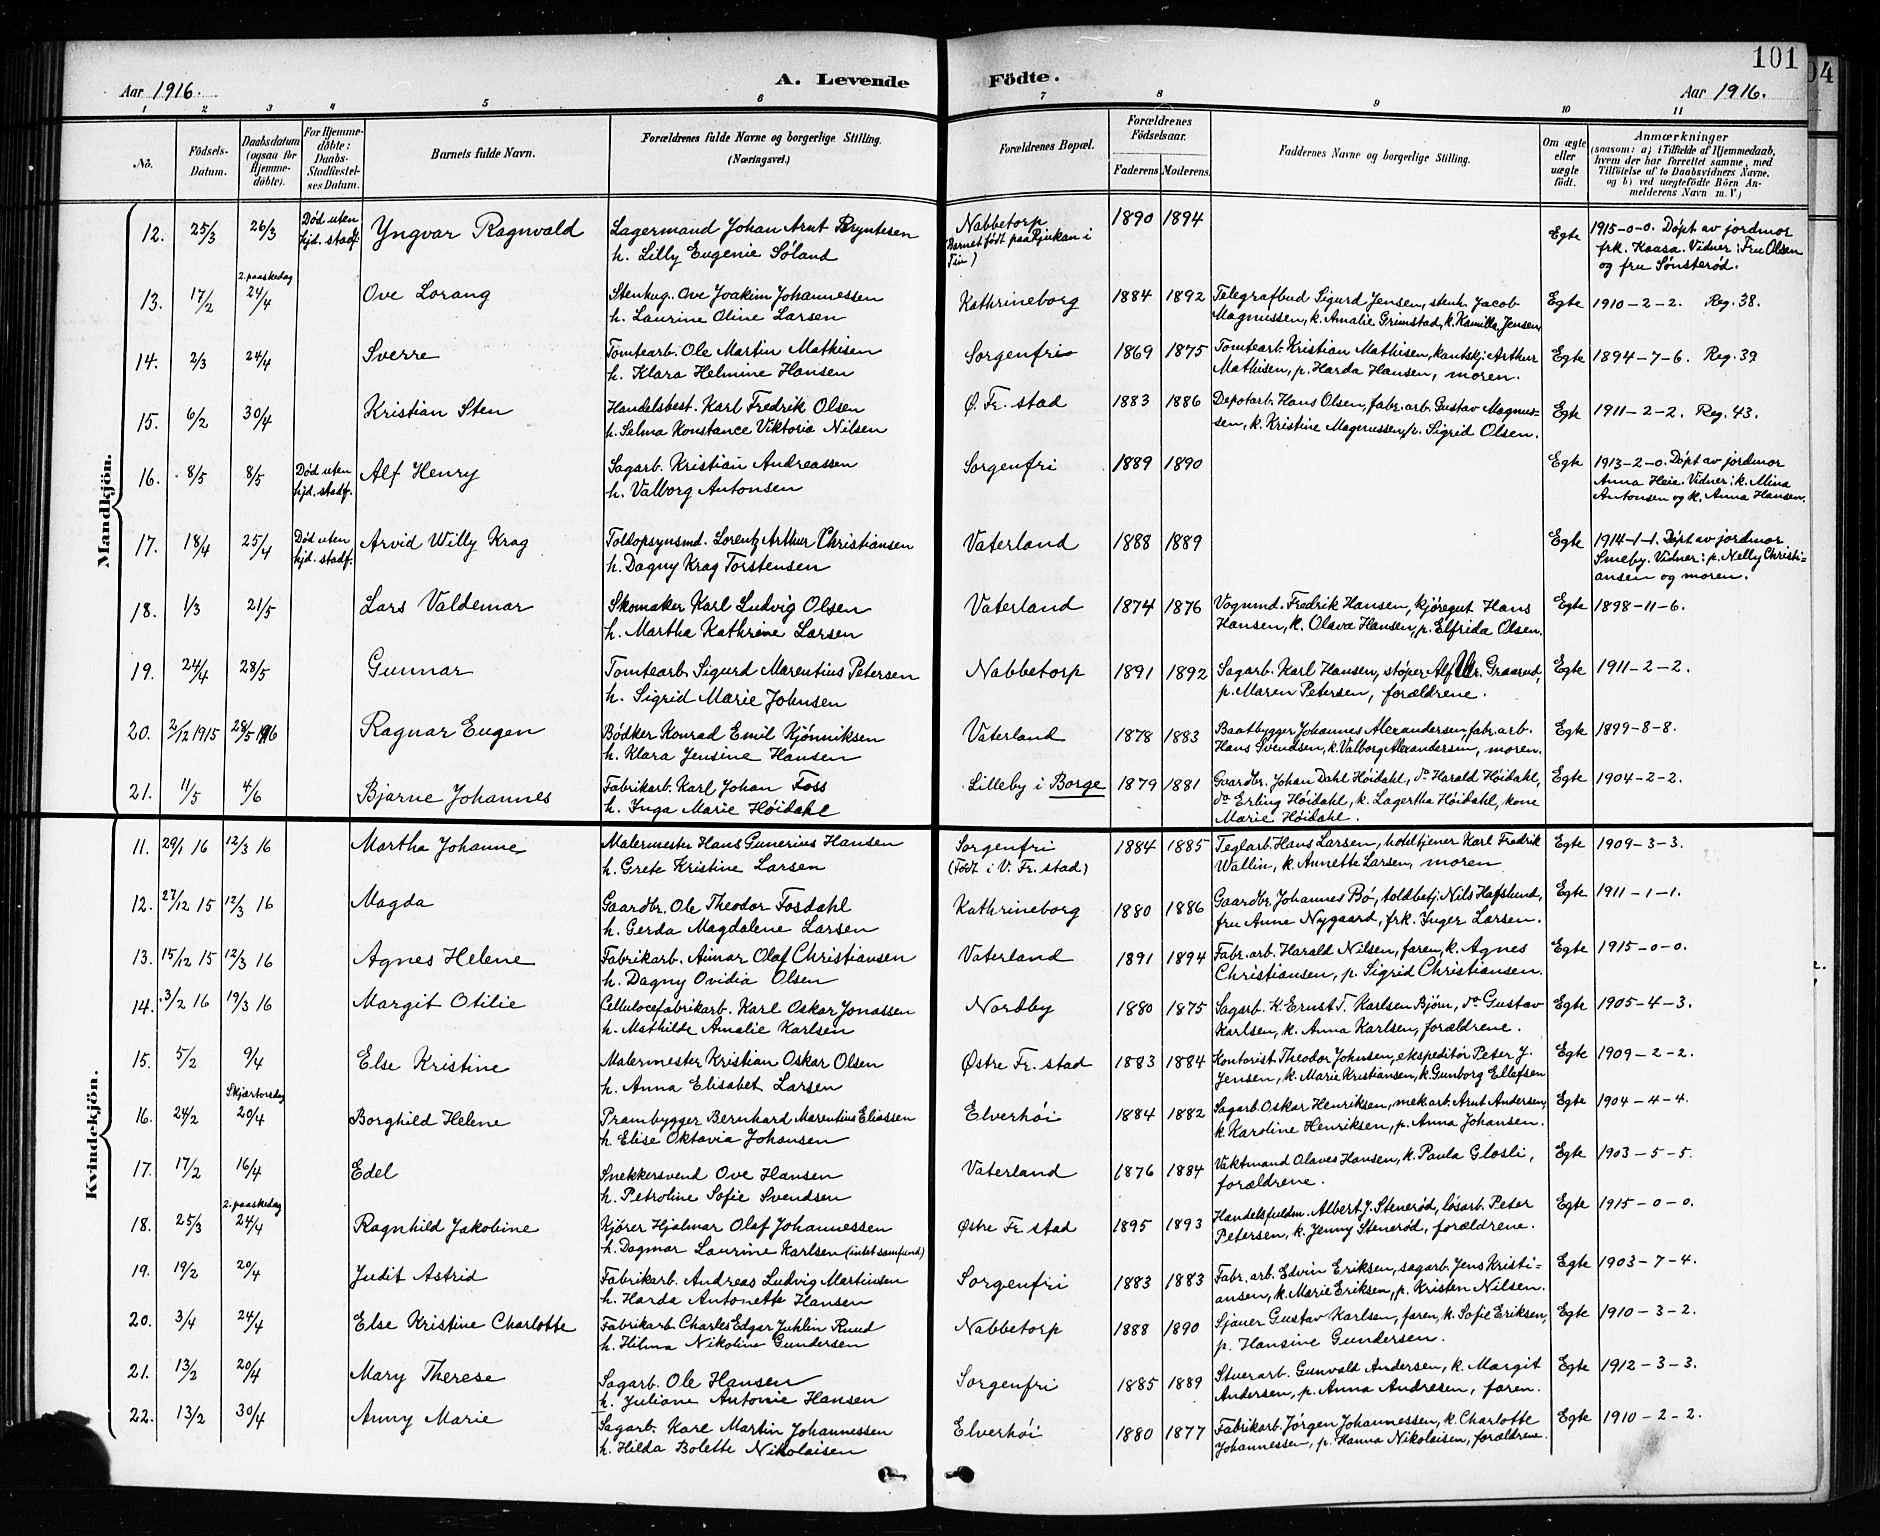 101
04
Aar 1916.
A. Levende
Födte.
Aar 1916.
1 2 3 4 5 6 7 8 9 10 11
No.
Födsels-
Datum.
Daabsdatum
(ogsaa for
Hjemme-
döbte).
For Hjemme-
döbte:
Daabs-
Stadfæstel-
ses Datum.
Barnets fulde Navn.
Forældrenes fulde Navne og borgerlige Stilling.
(Næringsvei.)
Forældrenes Bopæl.
Forældrenes
Födselsaar.
Faderens Moderens.
Faddernes Navne og borgerlige Stilling.
Om ægte
eller
uægte
födt.
Anmærkninger
(saasom: a) i Tilfælde af Hjemmedaab,
hvem der har forrettet samme, med
Tilföielse af to Daabsvidners Navne,
og b) ved uægtefödte Börn An-
melderens Navn m. V.)
Mandkjön.
12. 25/3 26/3 Død uten Yngvar Ragnvald Lagermand Johan Arnt Bryntesen Nabbetorp 1890 1894 Egte 1915-0-0. Døpt av jordmor
kjd. stadf. h. Lilly Eugenie Søland (Barnet født paa Rjukan i Tin) frk. Kaasa. Vidner: Fru Olsen
og fru Sønsterød.
2. paaskedag
13. 17/2 24/4 Ove Lorang Stenhug. Ove Joakim Johannessen Kathrineborg 1884 1892 Telegrafbud Sigurd Jensen, stenh. Jacob Egte 1910-2-2. Reg. 38.
h. Laurine Oline Larsen Magnussen, k. Amalie Grimstad, k. Kamilla Jensen
14. 2/3 24/4 Sverre Tomtearb. Ole Martin Mathisen Sorgenfri 1869 1875 Tomtearb. Kristian Mathisen, kantskj. Arthur Egte 1894-7-6. Reg. 39
h. Klara Helmine Hansen Mathisen, p. Harda Hansen, moren.
15. 6/2 30/4 Kristian Sten Handelsbest. Karl Fredrik Olsen Ø. Fr. stad 1883 1886 Depotarb. Hans Olsen, fabr. arb. Gustav Magnus- Egte 1911-2-2. Reg. 43.
h. Selma Konstance Viktoria Nilsen sen, k. Kristine Magnussen, p. Sigrid Olsen.
16. 8/5 8/5 Død uten Alf Henry Sagarb. Kristian Andreassen Sorgenfri 1889 1890 Egte 1913-2-0. Døpt av jordmor
kjd. stadf. h. Valborg Antonsen Anna Heie. Vidner: k. Mina
Antonsen og k. Anna Hansen.
17. 18/4 25/4 Død uten Arvid Willy Krag Toldopsynsmd. Lorentz Arthur Christiansen Vaterland 1888 1889 Egte 1914-1-1. Døpt av jordmor
kjd. stadf. h. Dagny Krag Torstensen Smeby. Vidner: p. Nelly Christi-
ansen og moren.
18. 1/3 21/5 Lars Valdemar Skomaker Karl Ludvig Olsen Vaterland 1874 1876 Vognmd. Fredrik Hansen, kjøregut Hans Egte 1898-11-6.
h. Martha Kathrine Larsen Hansen, k. Olava Hansen, p. Elfrida Olsen.
19. 24/4 28/5 Gunnar Tomtearb. Sigurd Marentius Petersen Nabbetorp 1891 1892 Sagarb. Karl Hansen, støper Alf Chr. Graarud, Egte 1911-2-2.
h. Sigrid Marie Johnsen p. Maren Petersen, forældrene.
20. 2/12 1915 28/5 1916 Ragnar Eugen Bødker Konrad Emil Kjønniksen Vaterland 1878 1883 Baatbygger Johannes Alexandersen, fabr. arb. Egte 1899-8-8.
h. Klara Jensine Hansen Hans Svendsen, k. Valborg Alexandersen, moren.
21. 11/5 4/6 Bjarne Johannes Fabrikarb. Karl Johan Foss Lilleby i Borge 1879 1881 Gaardbr. Johan Dahl Høidahl, do Harald Høidahl, Egte 1904-2-2.
h. Inga Marie Høidahl do Erling Høidahl, k. Lagertha Høidahl, kone
Marie Høidahl.
Kvindekjön.
11. 29/1 16 12/3 16 Martha Johanne Malermester Hans Gunerius Hansen Sorgenfri 1884 1885 Teglarb. Hans Larsen, hoteltjener Karl Fredrik Egte 1909-3-3.
h. Grete Kristine Larsen (Født i V. Fr. stad) Wallin, k. Annette Larsen, moren
12. 27/12 15 12/3 16 Magda Gaardbr. Ole Theodor Fosdahl Kathrineborg 1880 1886 Gaardbr. Johannes Bø, toldbetj. Nils Hafslund, Egte 1911-1-1.
h. Gerda Magdalene Larsen fru Anne Nygaard, frk. Inger Larsen.
13. 15/12 15 12/3 16 Agnes Helene Fabrikarb. Aimar Olaf Christiansen Vaterland 1891 1894 Fabr. arb. Harald Nilsen, faren, k. Agnes Egte 1915-0-0.
h. Dagny Ovidia Olsen Christiansen, p. Sigrid Christiansen.
14. 3/2 16 19/3 16 Margit Otilie Cellulocefabrikarb. Karl Oskar Jonassen Nordby 1880 1875 Sagarb. K. Ernst T. Karlsen Bjørn, do Gustav Egte 1905-4-3.
h. Mathilde Amalie Karlsen Karlsen, k. Anna Karlsen, forældrene.
15. 5/2 9/4 Else Kristine Malermester Kristian Oskar Olsen Østre Fr. stad 1883 1884 Kontorist Theodor Johnsen, ekspeditør Peter J. Egte 1909-2-2.
h. Anna Elisabet Larsen Jensen, k. Marie Kristiansen, k. Gunborg Ellefsen
Skjærtorsdag
16. 24/2 20/4 Borghild Helene Prambygger Bernhard Marentius Eliassen Elverhöi 1884 1882 Sagarb. Oskar Henriksen, mek. arb. Arnt Andersen, Egte 1904-4-4.
h. Elise Oktavia Johansen k. Karoline Henriksen, p. Anna Johansen.
17. 17/2 16/4 Edel Snekkersvend Ove Hansen Vaterland 1876 1884 Vaktmand Olaves Hansen, k. Paula Glosli, Egte 1903-5-5.
h. Petroline Sofie Svendsen forældrene.
2. paaskedag
18. 25/3 24/4 Ragnhild Jakobine Kjører Hjalmar Olaf Johannessen Østre Fr. stad 1895 1893 Handelsfuldm. Albert J. Stenerød, løsarb. Peter Egte 1915-0-0.
h. Dagmar Laurine Karlsen (intet samfund) Petersen, k. Jenny Stenerød, forældrene.
19. 19/2 20/4 Judit Astrid Fabrikarb. Andreas Ludvig Martinsen Sorgenfri 1883 1883 Fabr. arb. Edvin Eriksen, sagarb. Jens Kristi- Egte 1903-7-4.
h. Harda Antonette Hansen ansen, k. Marie Eriksen, p. Kristen Nilsen.
20. 3/4 24/4 Else Kristine Charlotte Fabrikarb. Charles Edgar Juhlin Ruud Nabbetorp 1888 1890 Sjauer Gustav Karlsen, faren, k. Sofie Eriksen, Egte 1910-3-2.
h. Hilma Nikoline Gundersen p. Hansine Gundersen.
21. 13/2 20/4 Mary Therese Sagarb. Ole Hansen Sorgenfri 1885 1889 Stuerarb. Gunvald Andersen, k. Margit Egte 1912-3-3.
h. Juliane Antonie Hansen Andersen, p. Anna Andresen, faren.
22. 13/2 30/4 Anny Marie Sagarb. Karl Martin Johannessen Elverhöi 1880 1877 Fabrikarb. Jörgen Johannessen, k. Charlotte Egte 1910-2-2.
h. Hilda Bolette Nikolaisen Johannessen, p. Hanna Nikolaisen, forældrene.